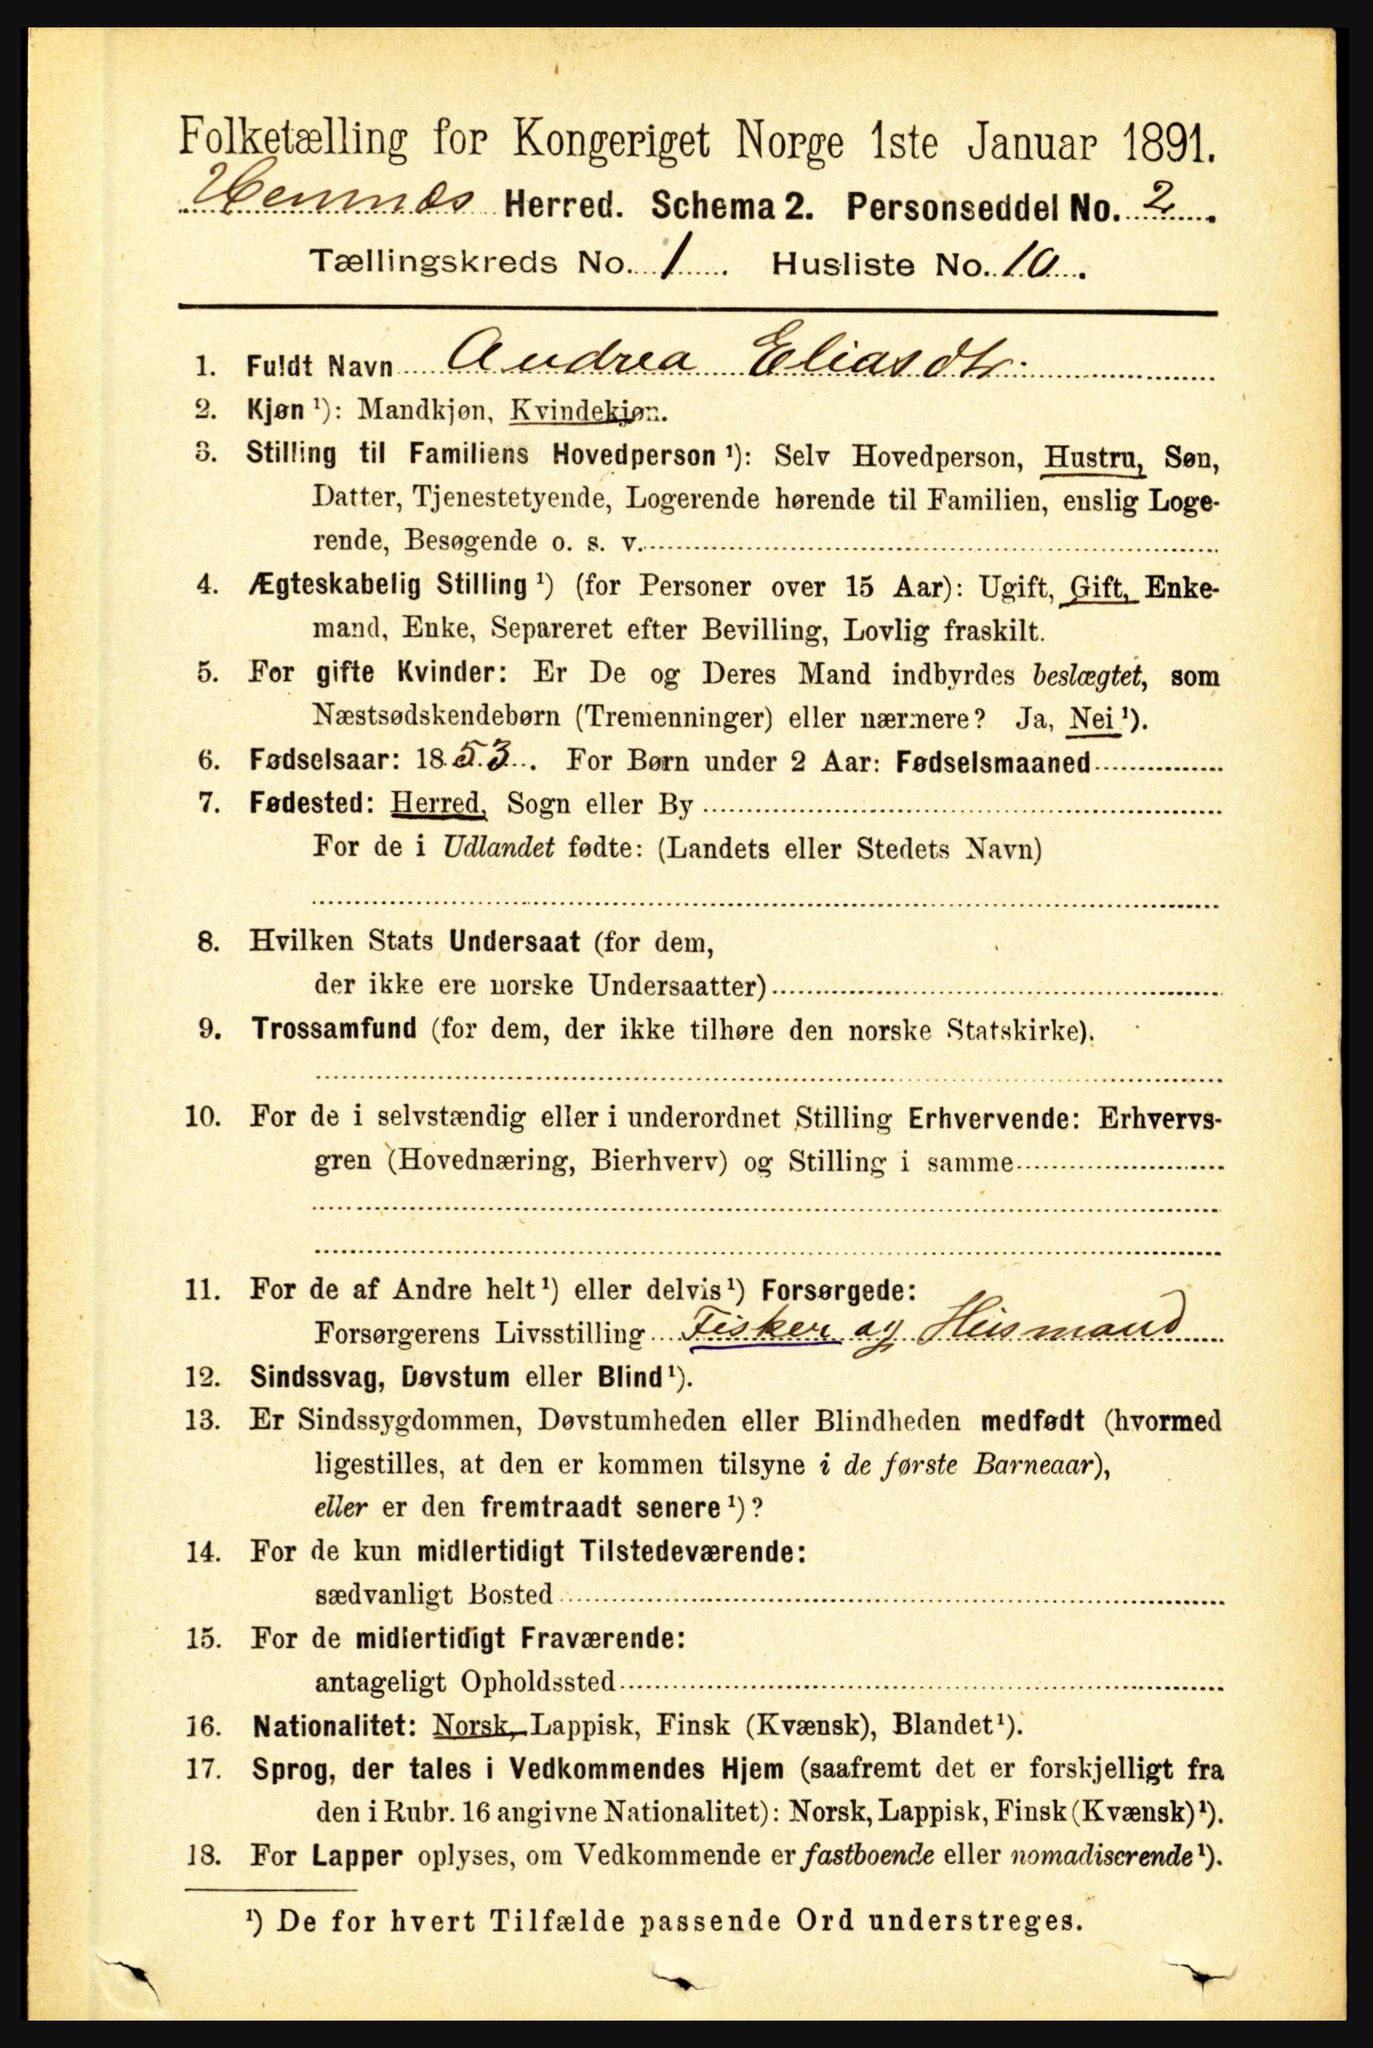 Folketælling for Kongeriget Norge 1ste Januar 1891.
Hemnæs Herred. Schema 2. Personseddel No. 2.
Tællingskreds No. 1. Husliste No. 10.
1. Fuldt Navn Andrea Eliasdtr.
2. Kjøn ¹): Mandkjøn, Kvindekjøn.
3. Stilling til Familiens Hovedperson ¹): Selv Hovedperson, Hustru, Søn,
Datter, Tjenestetyende, Logerende hørende til Familien, enslig Loge-
rende, Besøgende o. s. v.
4. Ægteskabelig Stilling ¹) (for Personer over 15 Aar): Ugift, Gift, Enke-
mand, Enke, Separeret efter Bevilling, Lovlig fraskilt.
5. For gifte Kvinder: Er De og Deres Mand indbyrdes beslægtet, som
Næstsødskendebørn (Tremenninger) eller nærmere? Ja, Nei ¹).
6. Fødselsaar: 1853. For Børn under 2 Aar: Fødselsmaaned
7. Fødested: Herred, Sogn eller By
For de i Udlandet fødte: (Landets eller Stedets Navn)
8. Hvilken Stats Undersaat (for dem,
der ikke ere norske Undersaatter)
9. Trossamfund (for dem, der ikke tilhøre den norske Statskirke).
10. For de i selvstændig eller i underordnet Stilling Erhvervende: Erhvervs-
gren (Hovednæring, Bierhverv) og Stilling i samme
11. For de af Andre helt ¹) eller delvis ¹) Forsørgede:
Forsørgerens Livsstilling Fisker og Husmand
12. Sindssvag, Døvstum eller Blind ¹).
13. Er Sindssygdommen, Døvstumheden eller Blindheden medfødt (hvormed
ligestilles, at den er kommen tilsyne i de første Barneaar),
eller er den fremtraadt senere ¹)?
14. For de kun midlertidigt Tilstedeværende:
sædvanligt Bosted
15. For de midlertidigt Fraværende:
antageligt Opholdssted
16. Nationalitet: Norsk, Lappisk, Finsk (Kvænsk), Blandet ¹).
17. Sprog, der tales i Vedkommendes Hjem (saafremt det er forskjelligt fra
den i Rubr. 16 angivne Nationalitet): Norsk, Lappisk, Finsk (Kvænsk) ¹).
18. For Lapper oplyses, om Vedkommende er fastboende eller nomadiserende ¹).
¹) De for hvert Tilfælde passende Ord understreges.